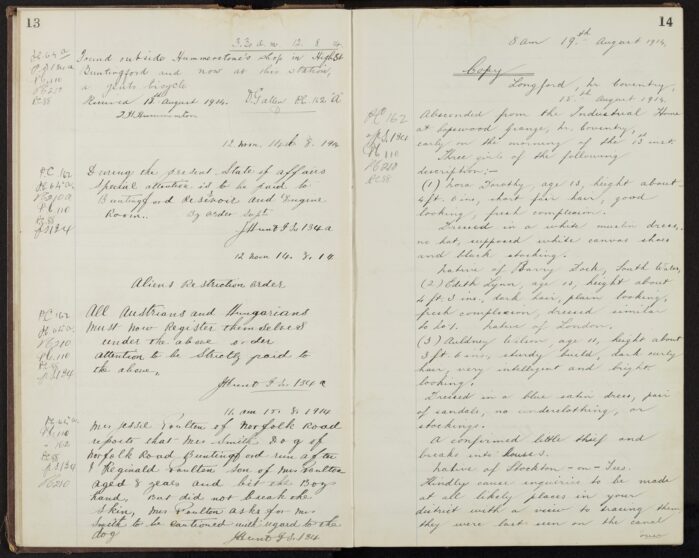 13
3.30 a.m 12. 8. 14
Found outside Hummerstone's Shop in High St
Buntingford and now at this Station,
a gents bicycle
Received 18th August 1914. PC 162 A
12 noon. 14th 8. 1914
During the present State of affairs
Special attention is to be paid to
Buntingford Resevoir and Engine
Room. By order Supt
J Hunt P.S. 134 a
12 noon 14. 8. 14
Aliens Restriction order
All Austrians and Hungarians
Must now Register themselves
under the above order
attention to be Strictly paid to
the above.
J Hunt P.S. 134 a
11 am 15. 8. 1914
Mrs Jessie Poulton of Norfolk Road
reports that Mrs Smiths Dog of
Norfolk Road Buntingford run after
Reginald Poulton Son of Mrs Poulton
aged 8 years and bit the Boys
hand, But did not break the
Skin, Mrs Poulton asks for Mrs
Smith to be cautioned with regard to the
dog J Hunt P.S. 134
PC 162
PC 110
PC 210
PC 98
PS 134
14
8 am 19th August 1914,
Copy
Longford, Nr Coventry,
15th August 1914.
Absconded from the Industrial Home
at Copswood Grange, Nr. Coventry,
early on the morning of the 13 inst.
Three girls of the following
description:-
(1) Dorothy, age 13, height about
4ft. 6ins, short fair hair, good
looking, fresh complexion.
Dressed in a white muslin dress,
no hat, supposed white canvas shoes
and black stocking.
Native of Barry Dock, South Wales,
(2) Edith Lynn, age 13, height about
4 ft. 3 ins. dark hair, plain looking,
fresh complexion, dressed similar
to No 1. Native of London.
(3) Wilson, age 11, height about
3 ft. 6 ins, sturdy build, dark curly
hair, very intelligent and bright
looking.
Dressed in a blue satin dress, pair
of sandals, no underclothing, or
stockings.
A confirmed little thief and
breaks into houses.
Native of Stockton-on-Tees.
Kindly cause enquiries to be made
at all likely places in your
district with a view to tracing them,
they were last seen on the canal
over
PC 162
PC 110
PC 210
PC 98